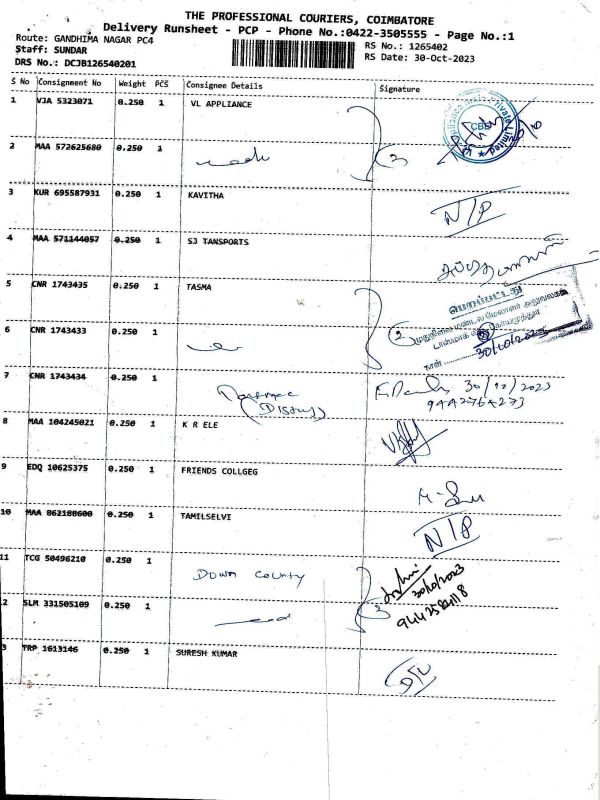 THE PROFESSIONAL COURIERS, COIMBATORE
Delivery Runsheet - PCP - Phone No.:0422-3505555 - Page No.:1
Route: GANDHIMA NAGAR PC4
RS No.: 1265402
Staff: SUNDAR
RS Date: 30-Oct-2023
DRS No.: DCJB126540201
S No Consignment No Weight PCS Consignee Details Signature
1 VJA 5323071 0.250 1 VL APPLIANCE
Private Limited
CBE
2 MAA 572625680 0.250 1
2
3 KUR 695587931 0.250 1 KAVITHA
N/P
4 MAA 571144057 0.250 1 SJ TANSPORTS
5 CNR 1743435 0.250 1 TASMA
பெறப்பட்டது
2
நாள்
30/10/2023
6 CNR 1743433 0.250 1
7 CNR 1743434 0.250 1
30/10/2023
9442764273
8 MAA 104245021 0.250 1 K R ELE
9 EDQ 10625375 0.250 1 FRIENDS COLLGEG
10 MAA 862188600 0.250 1 TAMILSELVI
N/P
11 TCG 50496210 0.250 1 DOWN COUNTY
30/10/2023
2
2 SLM 331505109 0.250 1
3 TRP 1613146 0.250 1 SURESH KUMAR